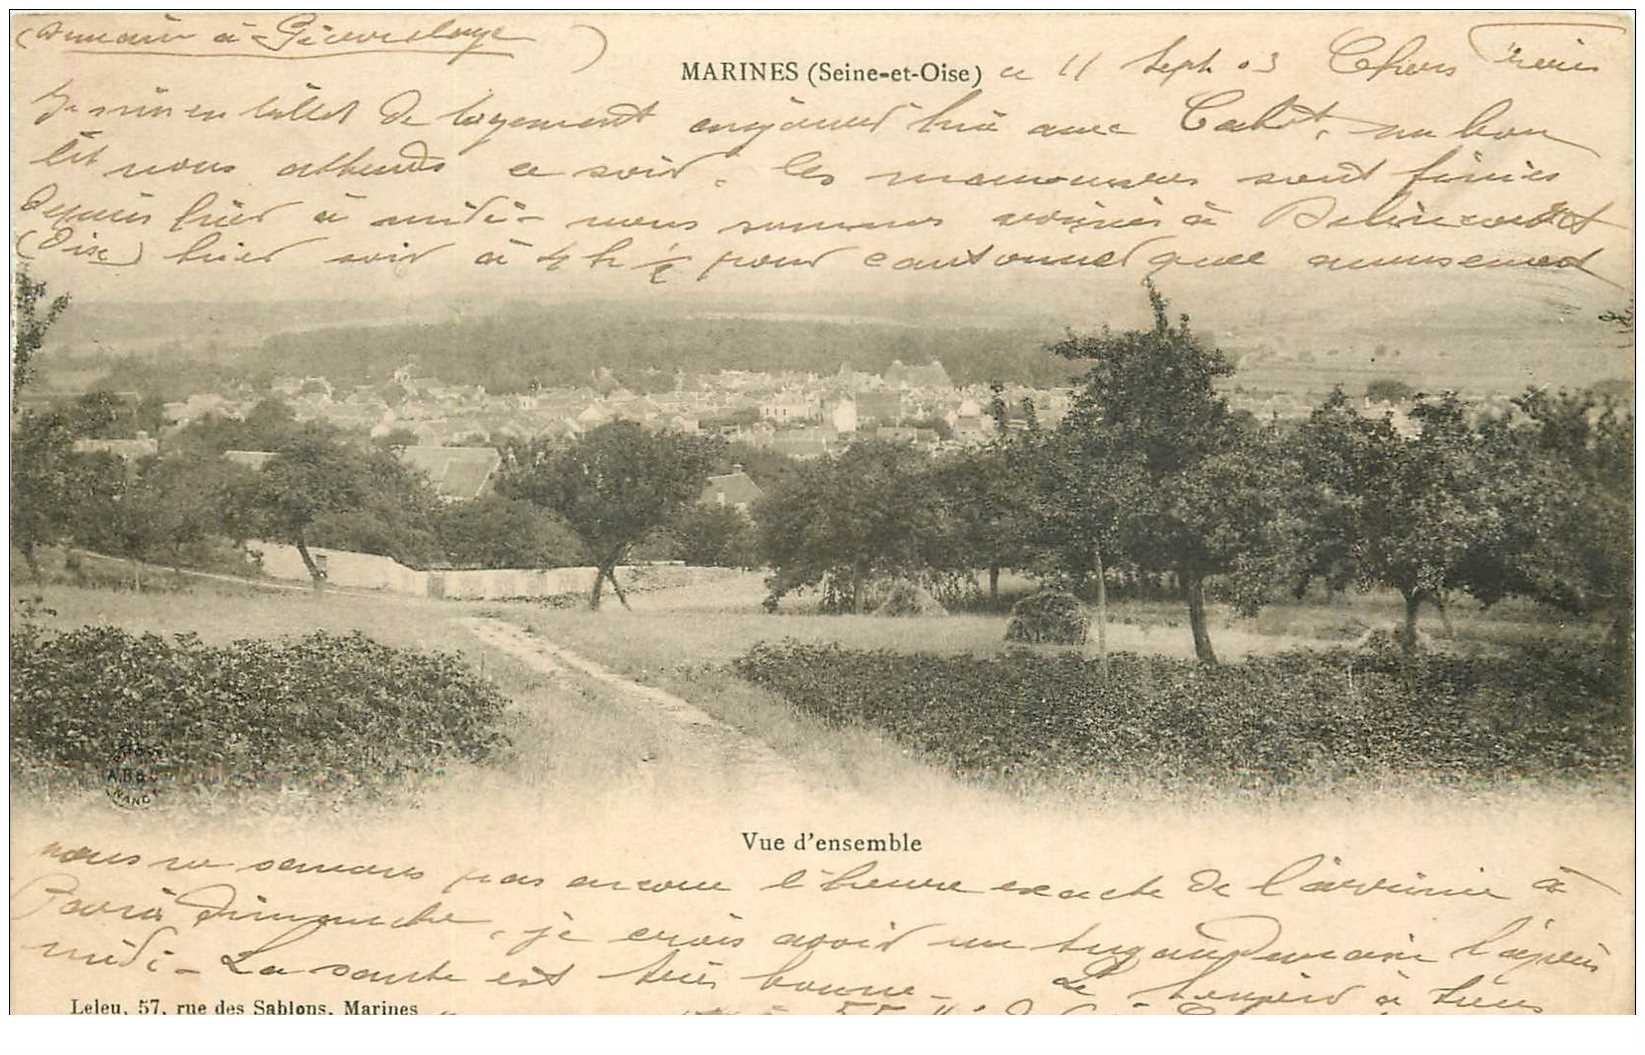 (demain à
MARINES (Seine-et-Oise) ce 11 Sept 03 Chers
Je suis en billet de logement aujourd'hui avec un bon
lit nous attends ce soir. les manoeuvres sont finies
depuis hier à midi - nous sommes arrivés à
(Oise) hier soir à 4 h ½ pour cantonner quel amusement
A.B.&C
NANCY
Vue d'ensemble
nous ne savons pas encore l'heure exacte de l'arrivée à
Paris Dimanche, je crois avoir un demain l'après
midi - La santé est très bonne - Le à
Leleu, 57, rue des Sablons, Marines